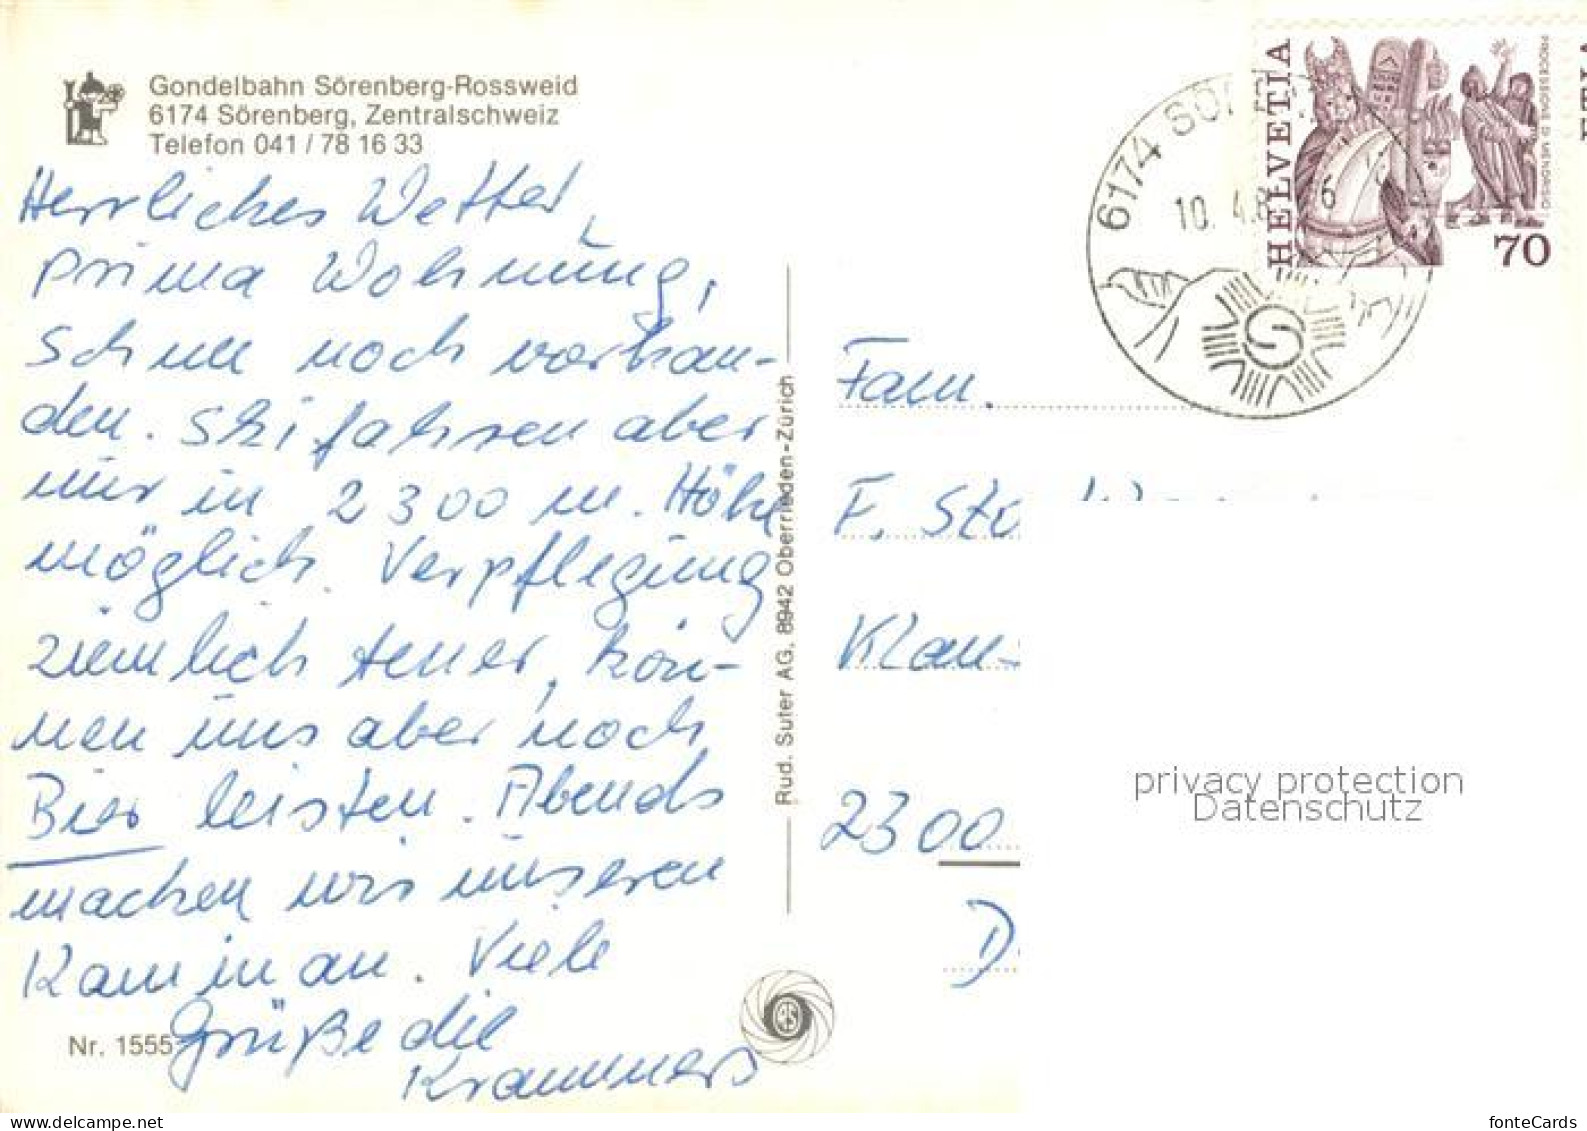 Gondelbahn Sörenberg-Rossweid
6174 Sörenberg, Zentralschweiz
Telefon 041 / 78 16 33
Herrliches Wetter,
prima Wohnung,
Schnee noch vorhan-
den. Skifahren aber
nur in 2300 m. Höhe
möglich. Verpflegung
ziemlich teuer, kön-
nen uns aber noch
Bier leisten. Abends
machen wir unseren
Kamin an. Viele
Grüße die
Krammers
Nr. 1555
Rud. Suter AG, 8942 Oberrieden-Zürich
6174 SÖ
10. 4. 8
6
HELVETIA
PROCESSIONE DI MENDRISIO
70
Fam.
F. Sto
Klau-
2300
D
privacy protection
Datenschutz
fonteCards